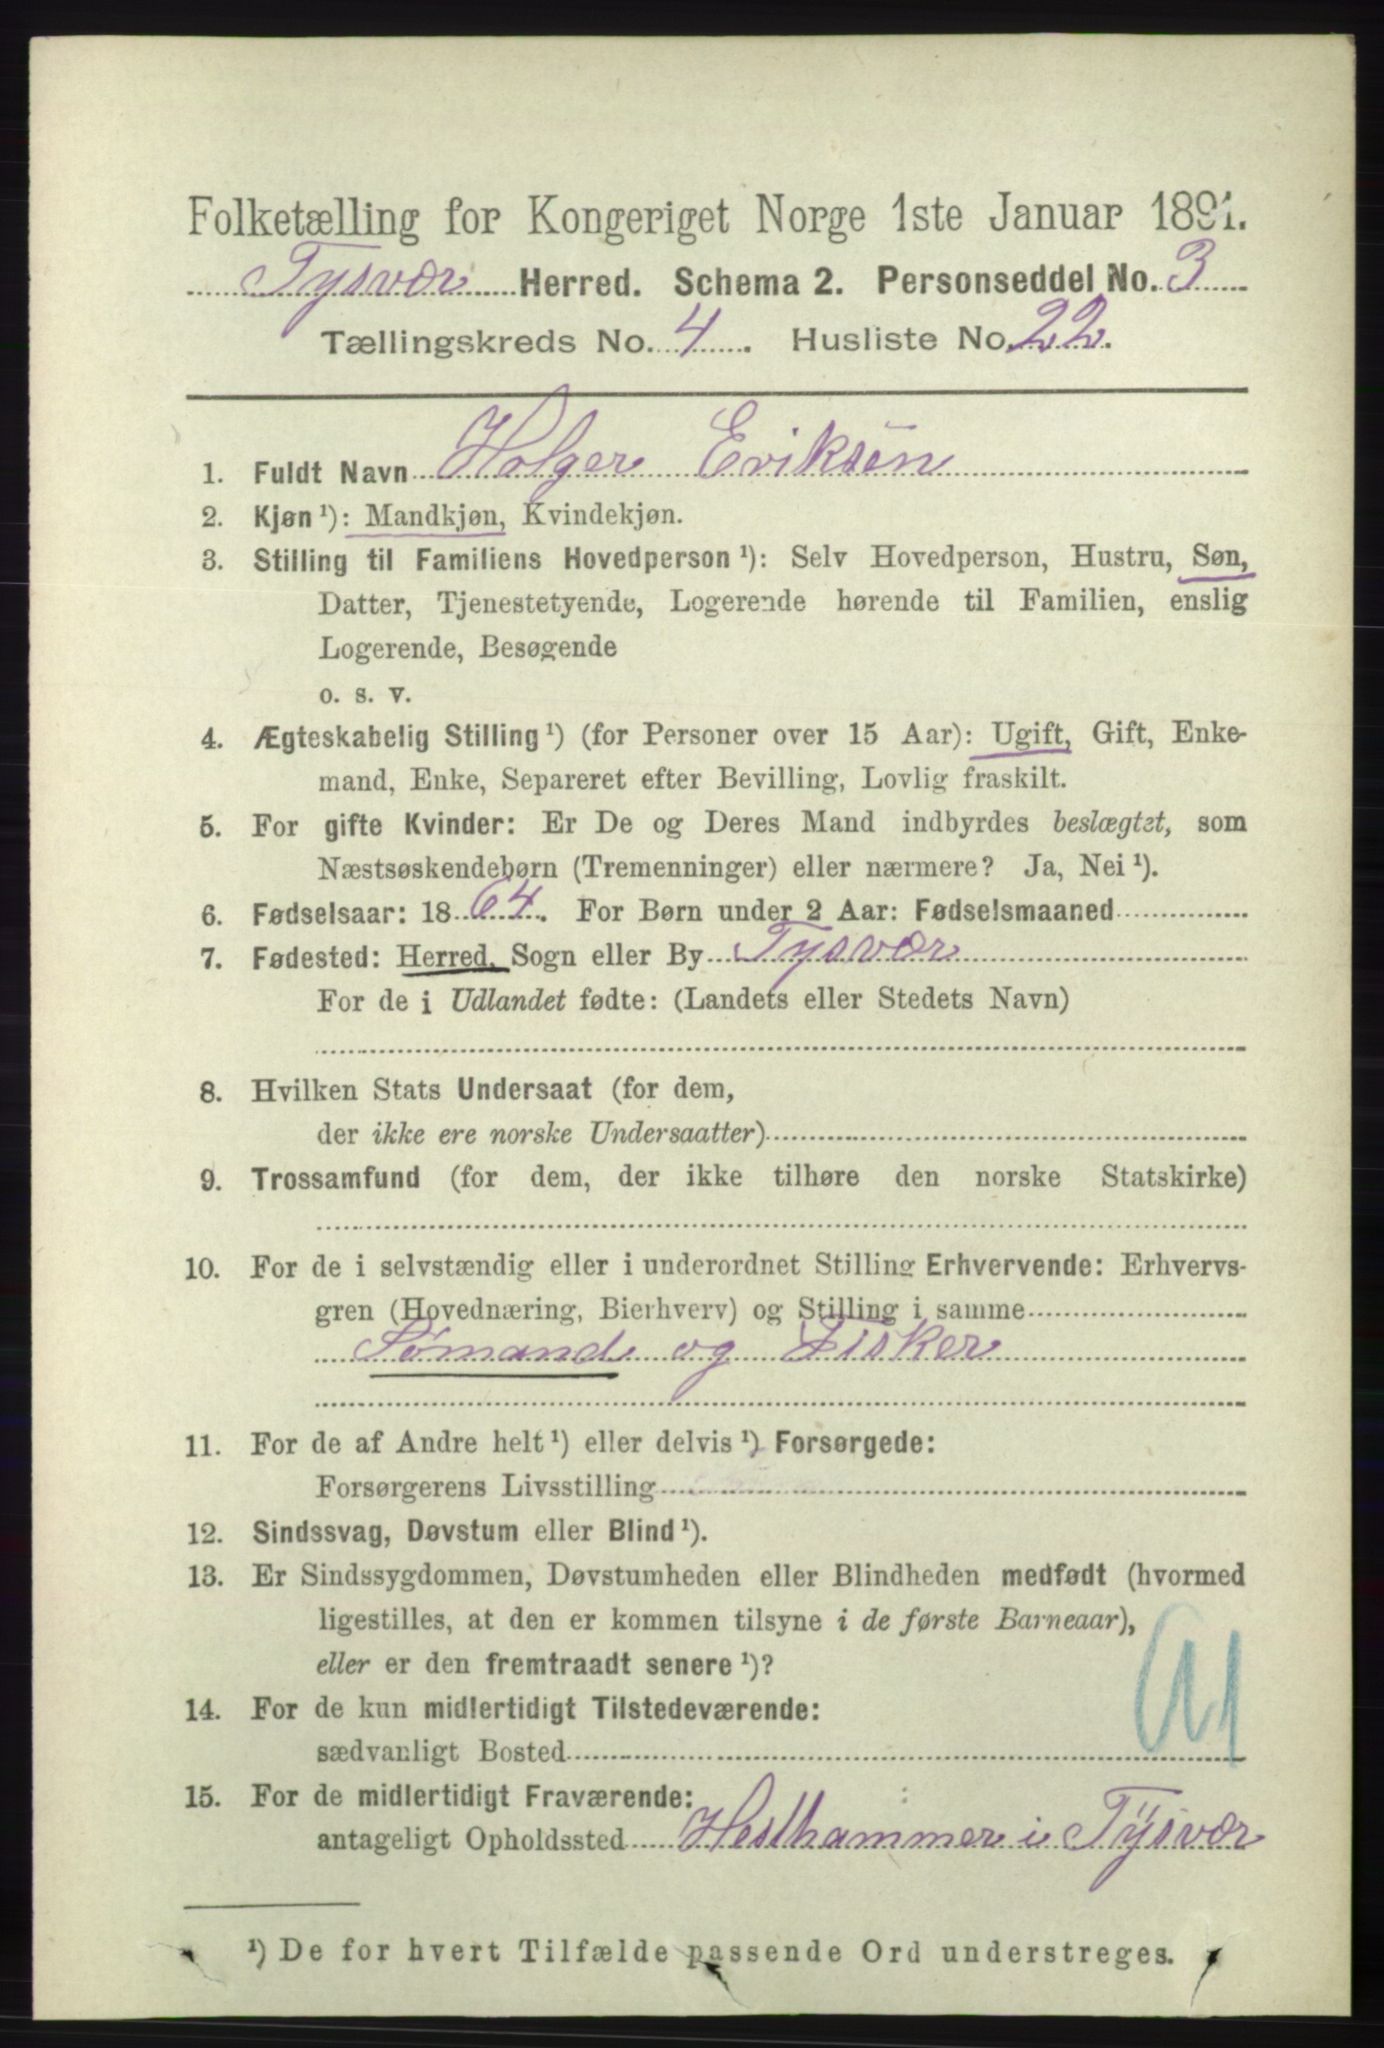 Folketælling for Kongeriget Norge 1ste Januar 1891.
Tysvær Herred. Schema 2. Personseddel No. 3
Tællingskreds No. 4. Husliste No. 22.
1. Fuldt Navn Holger Eriksen
2. Kjøn ¹): Mandkjøn, Kvindekjøn.
3. Stilling til Familiens Hovedperson ¹): Selv Hovedperson, Hustru, Søn,
Datter, Tjenestetyende, Logerende hørende til Familien, enslig
Logerende, Besøgende
o. s. v.
4. Ægteskabelig Stilling ¹) (for Personer over 15 Aar): Ugift, Gift, Enke-
mand, Enke, Separeret efter Bevilling, Lovlig fraskilt.
5. For gifte Kvinder: Er De og Deres Mand indbyrdes beslægtet, som
Næstsøskendebørn (Tremenninger) eller nærmere? Ja, Nei ¹).
6. Fødselsaar: 1864. For Børn under 2 Aar: Fødselsmaaned
7. Fødested: Herred, Sogn eller By Tysvær
For de i Udlandet fødte: (Landets eller Stedets Navn)
8. Hvilken Stats Undersaat (for dem,
der ikke ere norske Undersaatter)
9. Trossamfund (for dem, der ikke tilhøre den norske Statskirke)
10. For de i selvstændig eller i underordnet Stilling Erhvervende: Erhvervs-
gren (Hovednæring, Bierhverv) og Stilling i samme
Sømand og Fisker
11. For de af Andre helt ¹) eller delvis ¹) Forsørgede:
Forsørgerens Livsstilling
12. Sindssvag, Døvstum eller Blind ¹).
13. Er Sindssygdommen, Døvstumheden eller Blindheden medfødt (hvormed
ligestilles, at den er kommen tilsyne i de første Barneaar),
eller er den fremtraadt senere ¹)?
14. For de kun midlertidigt Tilstedeværende:
sædvanligt Bosted
15. For de midlertidigt Fraværende:
antageligt Opholdssted Hesthammer i Tysvær
¹) De for hvert Tilfælde passende Ord understreges.